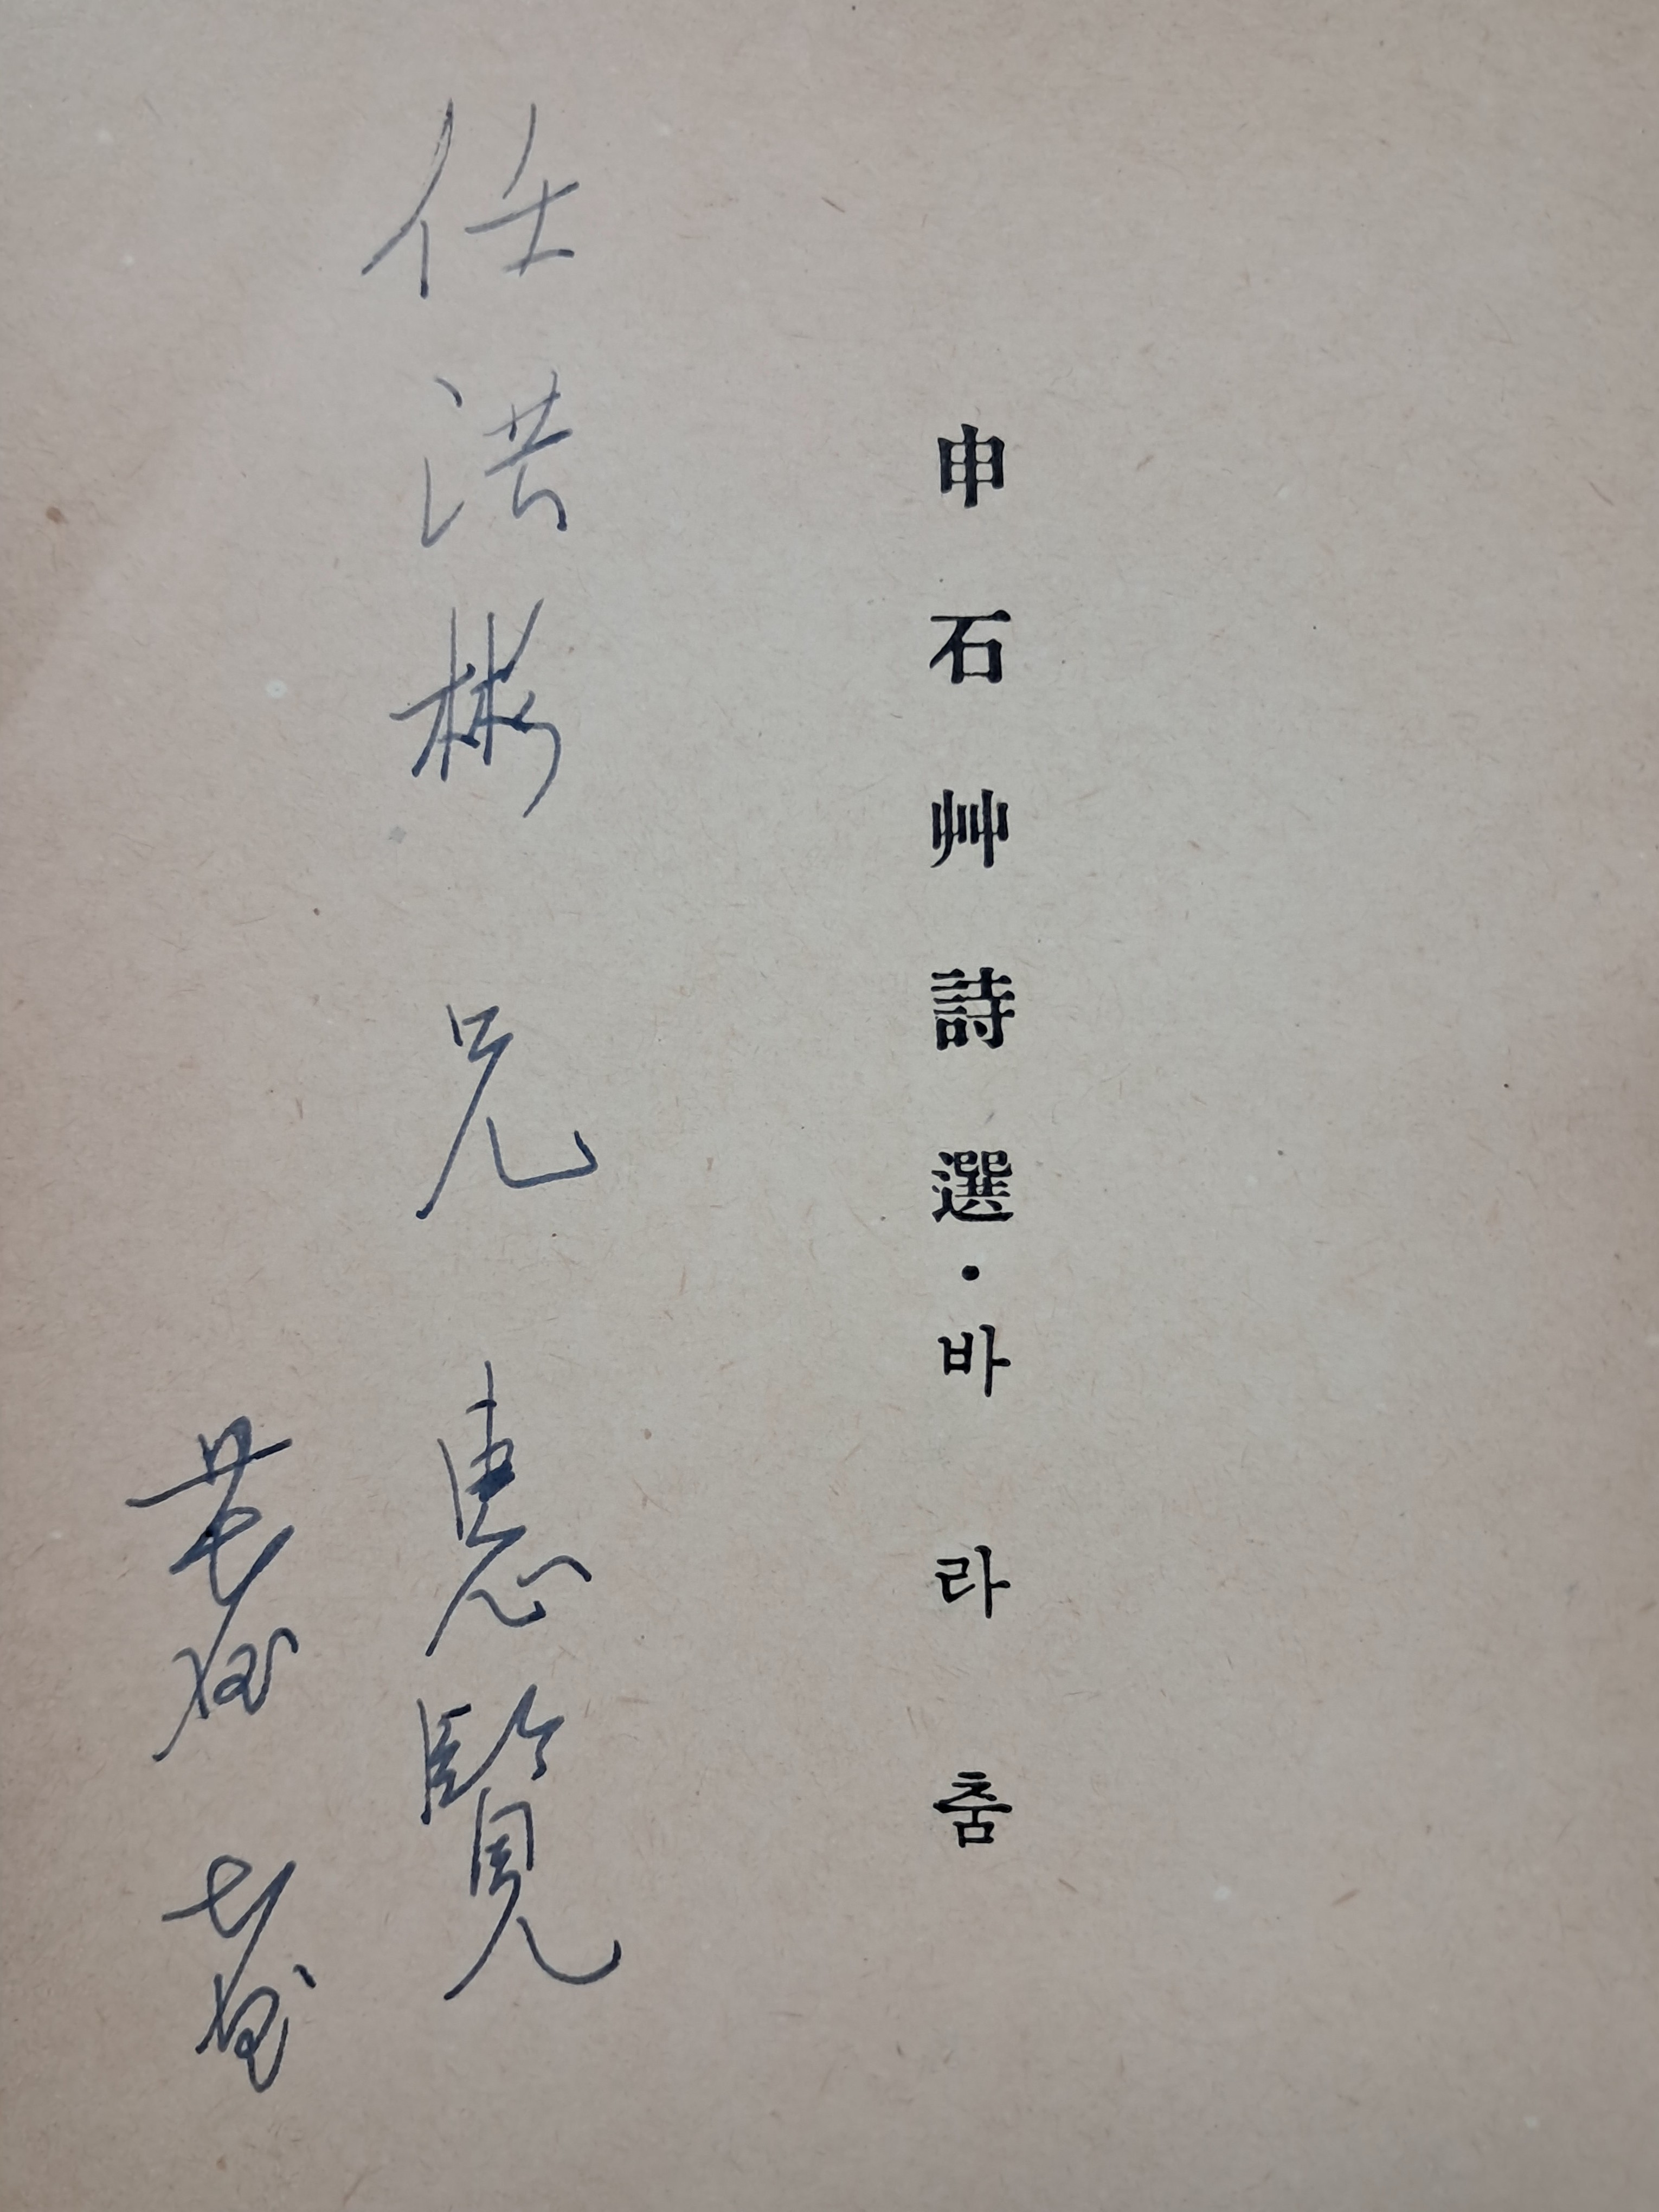 申石艸詩選・바라춤
任洪彬 兄 惠覽
著者